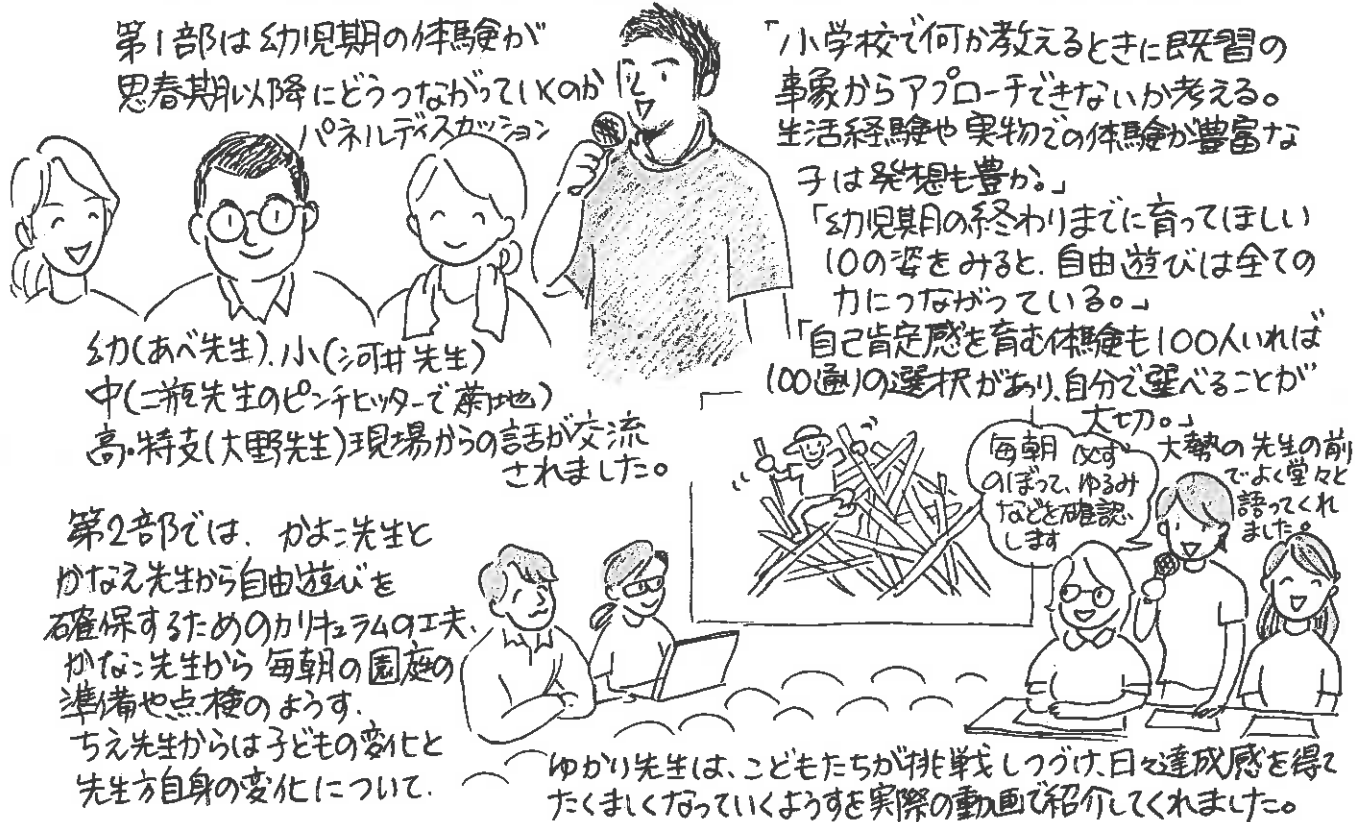 第1部は幼児期の体験が
思春期以降にどうつながっていくのか
パネルディスカッション
幼(あべ先生)、小(河井先生)
中(二瓶先生のピンチヒッターで菊地)
高・特支(大野先生)現場からの話が交流
されました。
「小学校で何か教えるときに既習の
事象からアプローチできないか考える。
生活経験や実物での体験が豊富な
子は発想も豊か。」
「幼児期の終わりまでに育ってほしい
10の姿をみると、自由遊びは全ての
力につながっている。」
「自己肯定感を育む体験も100人いれば
100通りの選択があり、自分で選べることが
大切。」
第2部では、かよこ先生と
かなえ先生から自由遊びを
確保するためのカリキュラムの工夫、
かなこ先生から毎朝の園庭の
準備や点検のようす、
ちえ先生からは子どもの変化と
先生方自身の変化について、
毎朝 必ず
のぼって、ゆるみ
などを確認
します
大勢の先生の前
でよく堂々と
語ってくれ
ました。
ゆかり先生は、こどもたちが挑戦しつづけ、日々達成感を得て
たくましくなっていくようすを実際の動画で紹介してくれました。